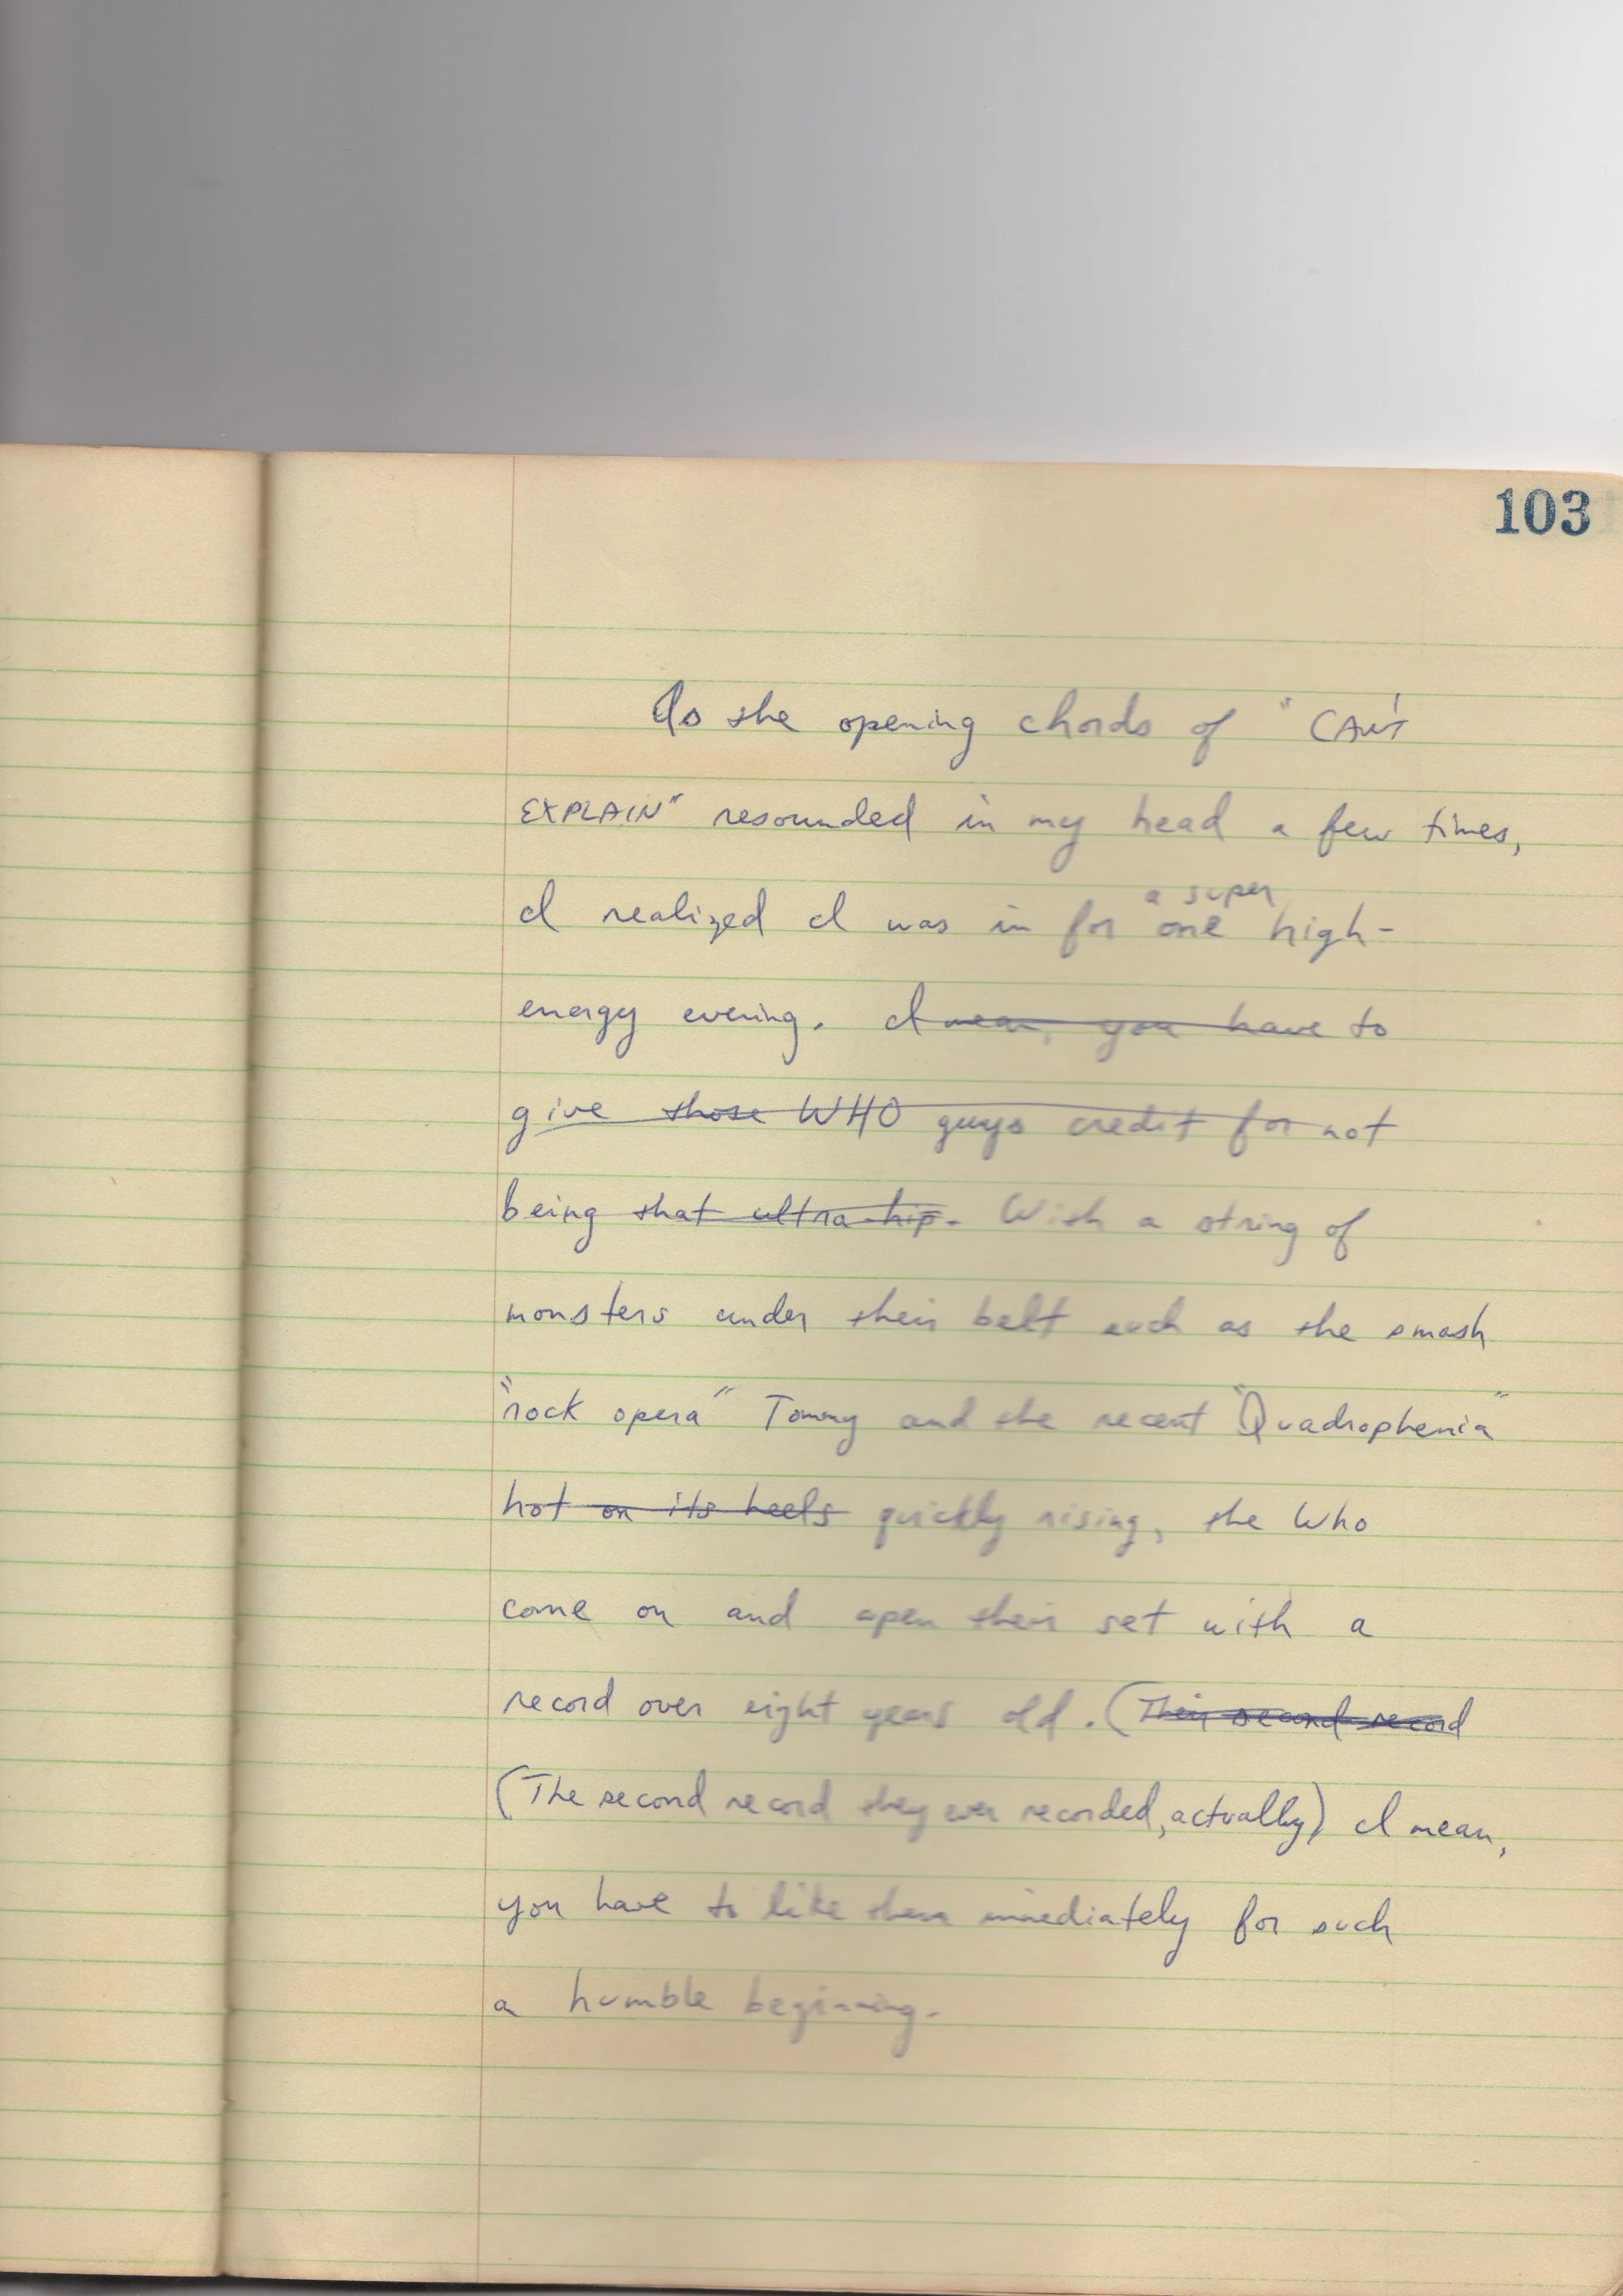 103
As the opening chords of "CAN'T
EXPLAIN" resounded in my head a few times,
a super
I realized I was in for one high-
energy evening. I mean, you have to
give those WHO guys credit for not
being that ultra-hip. With a string of
monsters under their belt such as the smash
"rock opera" Tommy and the recent "Quadrophenia"
hot on its heels quickly rising, the Who
come on and open their set with a
record over eight years old. (Their second record
(The second record they ever recorded, actually) I mean,
you have to like them immediately for such
a humble beginning.